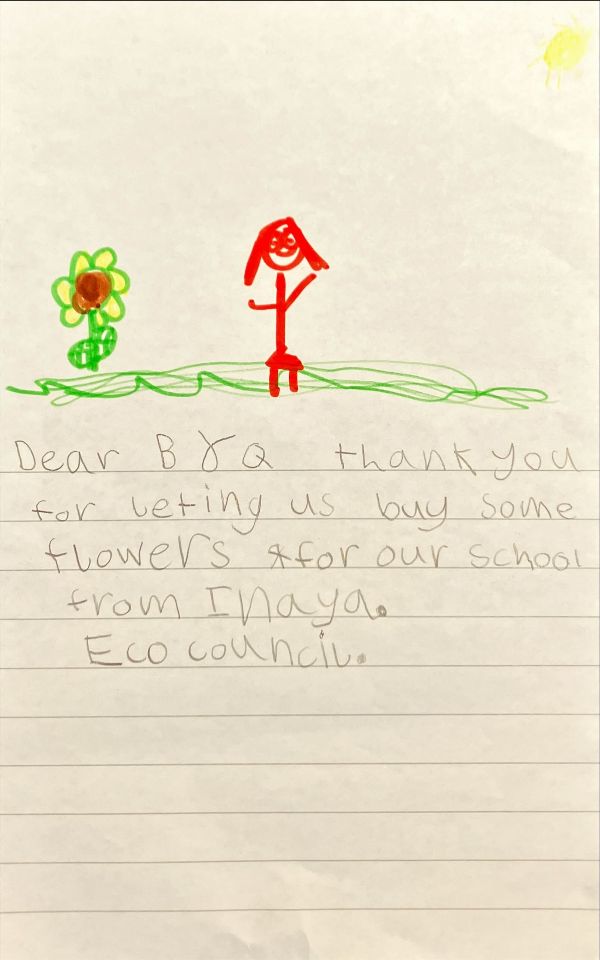 Dear B&Q thank you
for leting us buy some
flowers for our school
from Inaya.
Eco council.